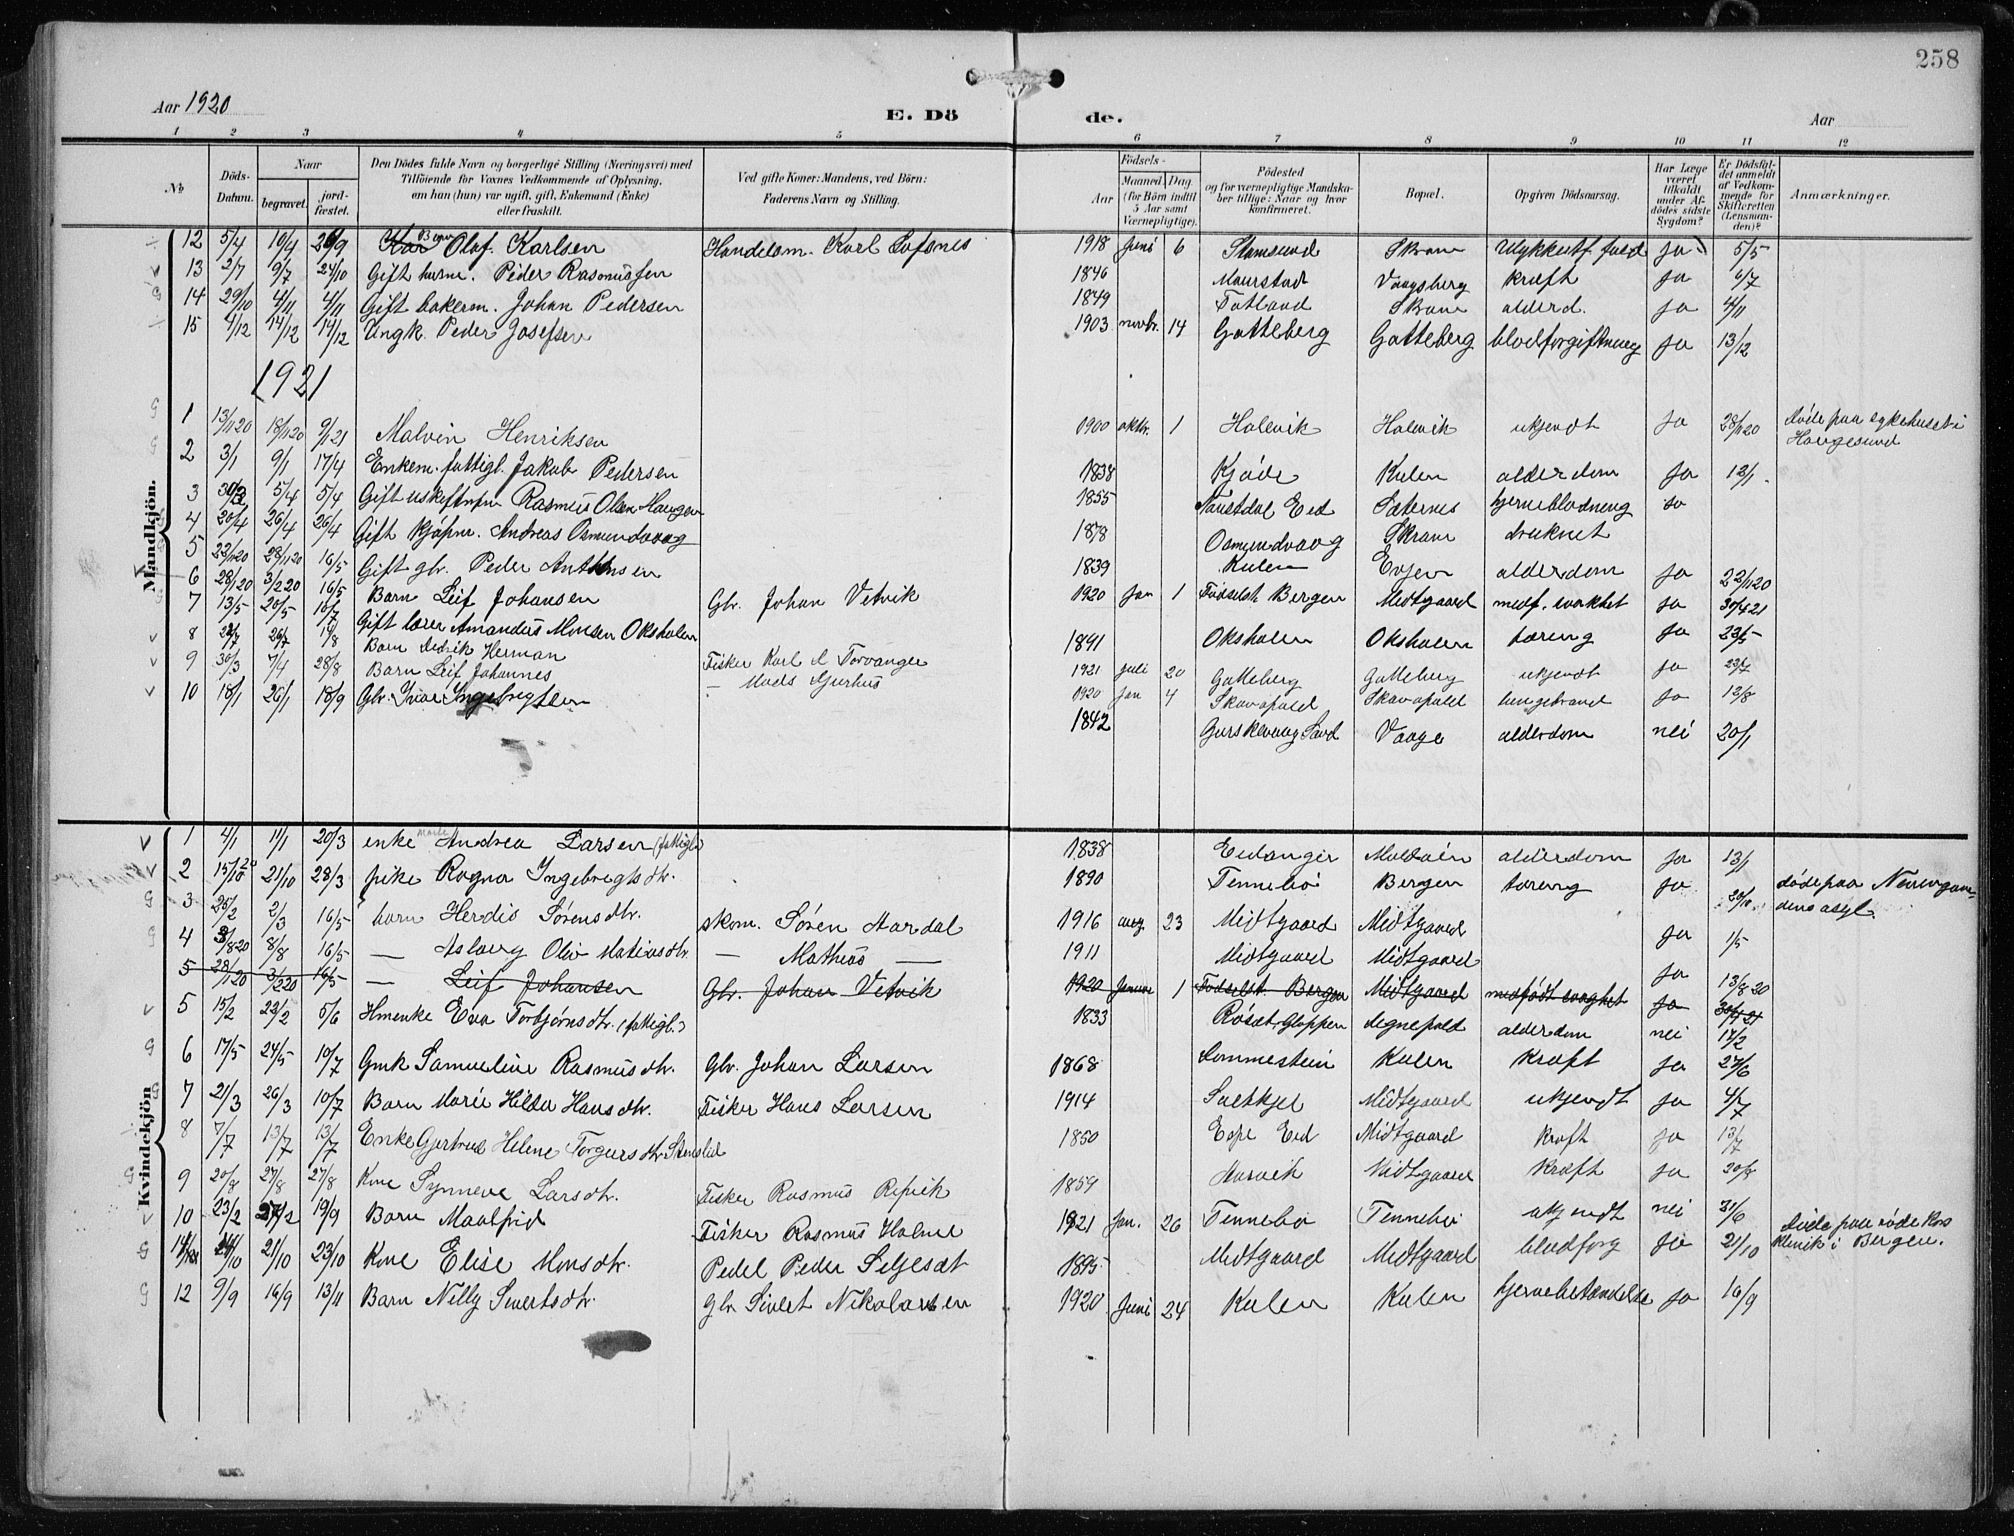 258
Aar 1920
E. Dö de.
Aar
1 2 3 4 5 6 7 8 9 10 11 12
No
Döds-Datum.
Naar
begravet.
jord-fæstet.
Den Dödes fulde Navn og borgerlige Stilling (Næringsvei) med
Tilföiende for Voxnes Vedkommende af Oplysning,
om han (hun) var ugift, gift, Enkemand (Enke)
eller fraskilt.
Ved gifte Koner: Mandens, ved Börn:
Faderens Navn og Stilling.
Födsels-
Aar
Maaned. Dag
(for Börn indtil
5 Aar samt
Værnepligtige).
Födested
og for værnepligtige Mandska-
ber tillige: Naar og hvor
konfirmeret.
Bopæl.
Opgiven Dödsaarsag.
Har Læge
været
tilkaldt
under Af-
dödes sidste
Sygdom?
Er Dödsfal-
det anmeldt
af Vedkom-
mende for
Skifteretten
(Lensman-
den)?
Anmærkninger.
Mandkjön.
12 5/4 10/4 26/9 Barn Olaf Karlsen Handelsm. Karl Lofsnes 1918 Juni 6 Stamsund Skram ulykkestf. fald ja 5/5
13 2/7 9/7 24/10 Gift kurm. Peder Rasmussen 1846 Maurstad Vaagsberg kræft ja 6/7
14 29/10 4/11 4/11 Gift bakerm. Johan Pedersen 1849 Totland Skram alderd. ja 4/11
15 4/12 14/12 14/12 Ungk. Peder Josefsen 1903 novbr. 14 Gotteberg Gotteberg blodforgiftning ja 13/12
1921
1 13/1120 18/1120 9/121 Malvin Henriksen 1900 oktbr. 1 Halsvik Halsvik ukjendt ja 28/1120 döde paa sykehuset i
Haugesund
2 3/1 9/1 17/4 Enkem. fattigl. Jakob Pedersen 1838 Kjöde Kulen alderdom ja 12/1
3 30/3 5/4 5/4 Gift Rasmus Olsen Haugen 1855 Naustdal Eid Sæternes hjerneblødning ja
4 20/4 26/4 26/4 Gift kjöpm. Andreas Osmundvaag 1878 Osmundvaag Skram druknet
5 22/1120 28/1120 16/5 Gift gbr. Peder Antonsen 1839 Kulen Evjen alderdom ja 22/1120
6 28/120 3/220 16/5 Barn Leif Johansen Gbr. Johan Vetvik 1920 Jan 1 Födselst. Bergen Midtgaard medf. svakhet ja 30/421
7 13/5 20/5 10/7 Gift lærer Amandus Monsen Oksholen 1891 Oksholen Oksholen tæring ja 23/5
8 22/7 26/7 14/8 Barn Didrik Herman Fisker Karl L Torvanger 1921 Juli 20 Gotteberg Gotteberg ukjendt ja 23/7
9 30/3 7/4 28/8 Barn Leif Johannes — Mads Gjerhus 1920 Jan 4 Skavøpold Skavøpold lungebrand ja 12/8
10 18/1 26/1 18/9 Gbr. Ivar Ingebrigtsen 1842 Gurskevaag Sand Vaage alderdom nei 20/1
Kvindekjön
1 4/1 11/1 20/3 enke Marte Andrea Larsen (fattigl.) 1838 Eidanger Maldøen alderdom ja 13/1
2 15/1020 21/10 28/3 pike Ragna Ingebrigtsdtr. 1890 Tennebö Bergen tæring ja 20/10 döde paa Nevengaar-
dens asyl
3 25/2 2/3 16/5 barn Herdis Sörensdtr. skom. Sören Aardal 1916 aug. 23 Midtgaard Midtgaard ja 1/5
4 3/820 8/8 16/5 — Asborg Oliv Matiasdtr. — Mathias — 1911 Midtgaard Midtgaard ja 13/820
5 28/120 3/220 16/5 — Leif Johansen Gbr. Johan Vetvik 1920 Januar 1 Födselst. Bergen Midtgaard medfödt svaghet ja 30/421
5 15/2 22/2 5/6 Hmenke Eva Torbjörnsdtr. (fattigl.) 1833 Rösæt, Gloppen Degnepold alderdom nei 17/2
6 17/5 24/5 10/7 Gmk Samueline Rasmusdtr. Gbr. Johan Larsen 1868 Lommestein Kulen kræft ja 27/6
7 21/3 26/3 10/7 Barn Marie Hilda Hansdtr. Fisker Hans Larsen 1914 Saltkjel Midtgaard ukjendt ja 4/7
8 7/7 13/7 13/7 Enke Gjertrud Helene Torgersdtr Stenslid 1850 Espe Eid Midtgaard kræft ja 13/7
9 20/8 27/8 27/8 Kone Synneve Larsdtr. Fisker Rasmus Refvik 1859 Harvik Midtgaard kræft ja 20/8
10 23/2 27/2 19/9 Barn Maalfrid Fisker Rasmus Holme 1921 Jan. 26 Tennebö Tennebö ukjendt nei 31/6
11 14/10 21/10 23/10 Kone Elise Monsdtr. Pedel Peder Seljesæt 1895 Midtgaard Midtgaard blodforg ja 21/10 döde paa röde kors
klinik i Bergen.
12 9/9 16/9 13/11 Barn Nilly Sivertsdtr. Gbr Sivert Nikolaisen 1920 Juni 24 Kulen Kulen hjernebetændelse ja 16/9